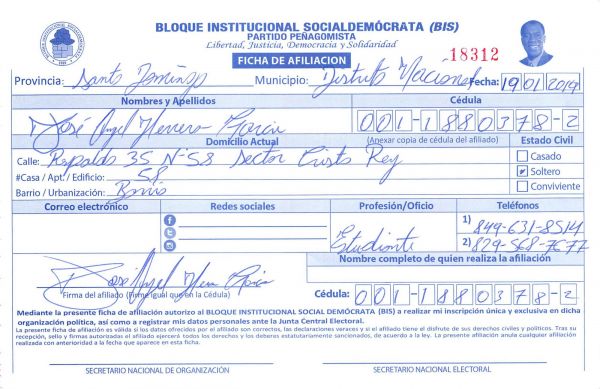 BLOQUE INSTITUCIONAL SOCIALDEMÓCRATA (BIS)
PARTIDO PEÑAGOMISTA
Libertad, Justicia, Democracia y Solidaridad
FICHA DE AFILIACION
18312
Provincia: Santo Domingo Municipio: Distrito Nacional Fecha: 19/01/2019
Nombres y Apellidos Cédula
José Angel Herrera García 001-1880378-2
Domicilio Actual (Anexar copia de cédula del afiliado) Estado Civil
Calle: Respaldo 35 Nº 58 Sector Cristo Rey Casado
#Casa / Apt. / Edificio: 58 Soltero
Barrio / Urbanización: Barrio Conviviente
Correo electrónico Redes sociales Profesión/Oficio Teléfonos
1) 849-631-8514
Estudiante 2) 829-568-7677
Nombre completo de quien realiza la afiliación
José Angel Herrera García
Firma del afiliado (Firme igual que en la Cédula) Cédula: 001-1880378-2
Mediante la presente ficha de afiliación autorizo al BLOQUE INSTITUCIONAL SOCIAL DEMÓCRATA (BIS) a realizar mi inscripción única y exclusiva en dicha
organización política, así como a registrar mis datos personales ante la Junta Central Electoral.
La presente ficha de afiliación es válida si los datos ofrecidos por el afiliado son correctos, las declaraciones veraces y si el afiliado tiene el disfrute de sus derechos civiles y políticos. Tras su
recepción, sello y firmas autorizadas el afiliado ejercerá todos los derechos y los deberes estatutariamente sancionados, de acuerdo a la ley. La presente afiliación anula cualquier afiliación
realizada con anterioridad a la fecha que aparece en esta ficha.
SECRETARIO NACIONAL DE ORGANIZACIÓN SECRETARIO NACIONAL ELECTORAL